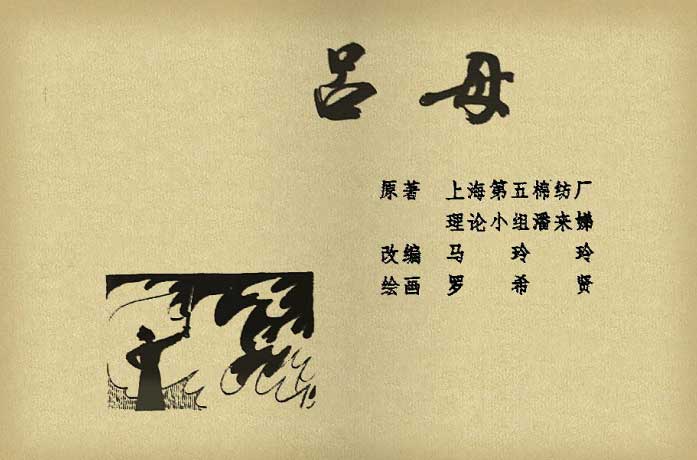 吕母
原著 上海第五棉纺厂
理论小组潘来娣
改编 马玲玲
绘画 罗希贤